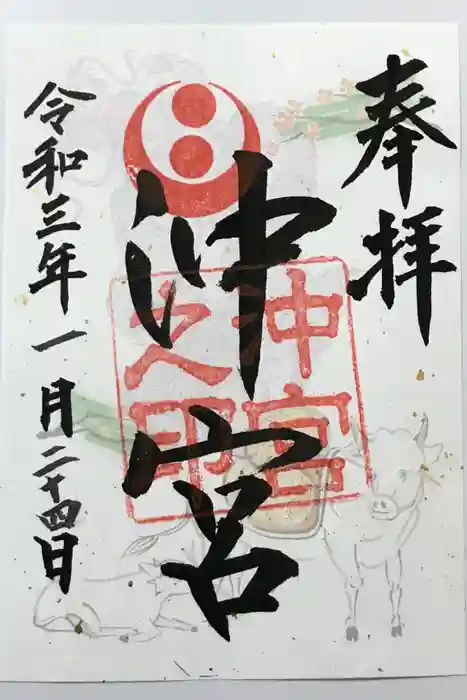 奉拝
沖宮
沖宮
之印
令和三年一月二十四日